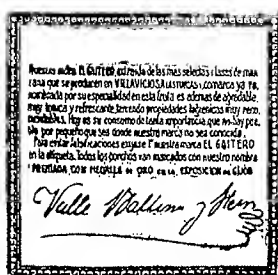 Nuestra sidra EL GAITERO, extraida de las mas selectas clases de man
zana que se producen en VILLAVICIOSA (ASTURIAS), comarca ya re,
nombrada por su especialidad en esta fruta es ademas de agradable,
muy tonica y refrescante, teniendo propiedades higienicas muy reco,
mendables. Hoy es su consumo de tanta importancia que no hay pue,
blo por pequeño que sea donde nuestra marca no sea conocida.
Para evitar falsificaciones exijase nuestra marca EL GAITERO
en la etiqueta. Todos los corchos van marcados con nuestro nombre
PREMIADA CON MEDALLA de ORO en la EXPOSICION de GIJON
Valle Ballina y Fern